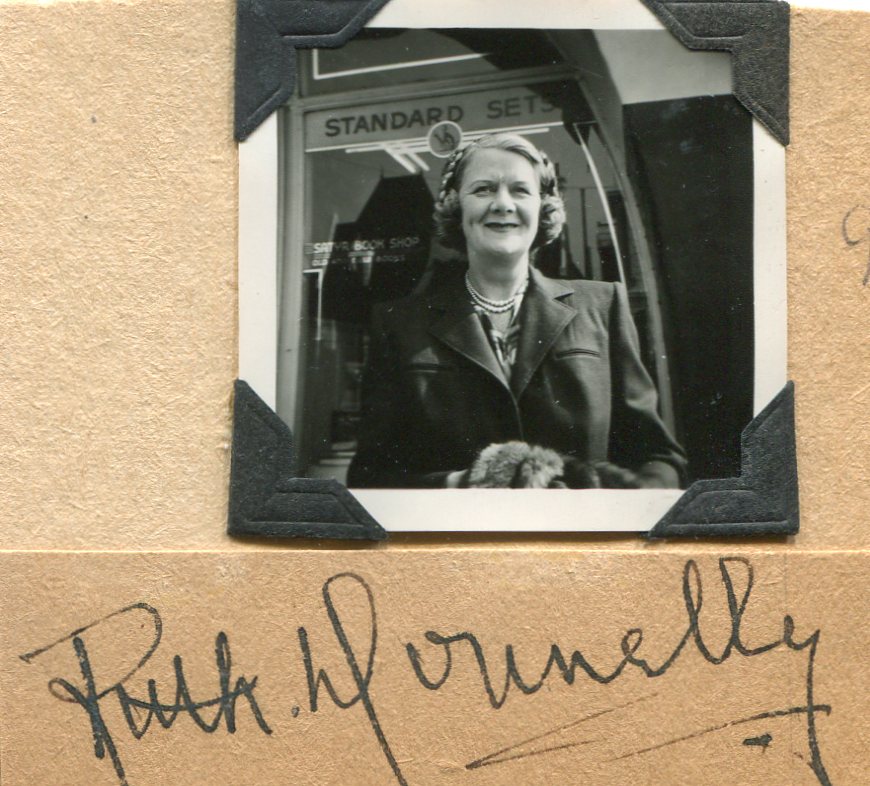 STANDARD SETS
SATYR BOOK SHOP
BOOKS
Ruth Donnelly